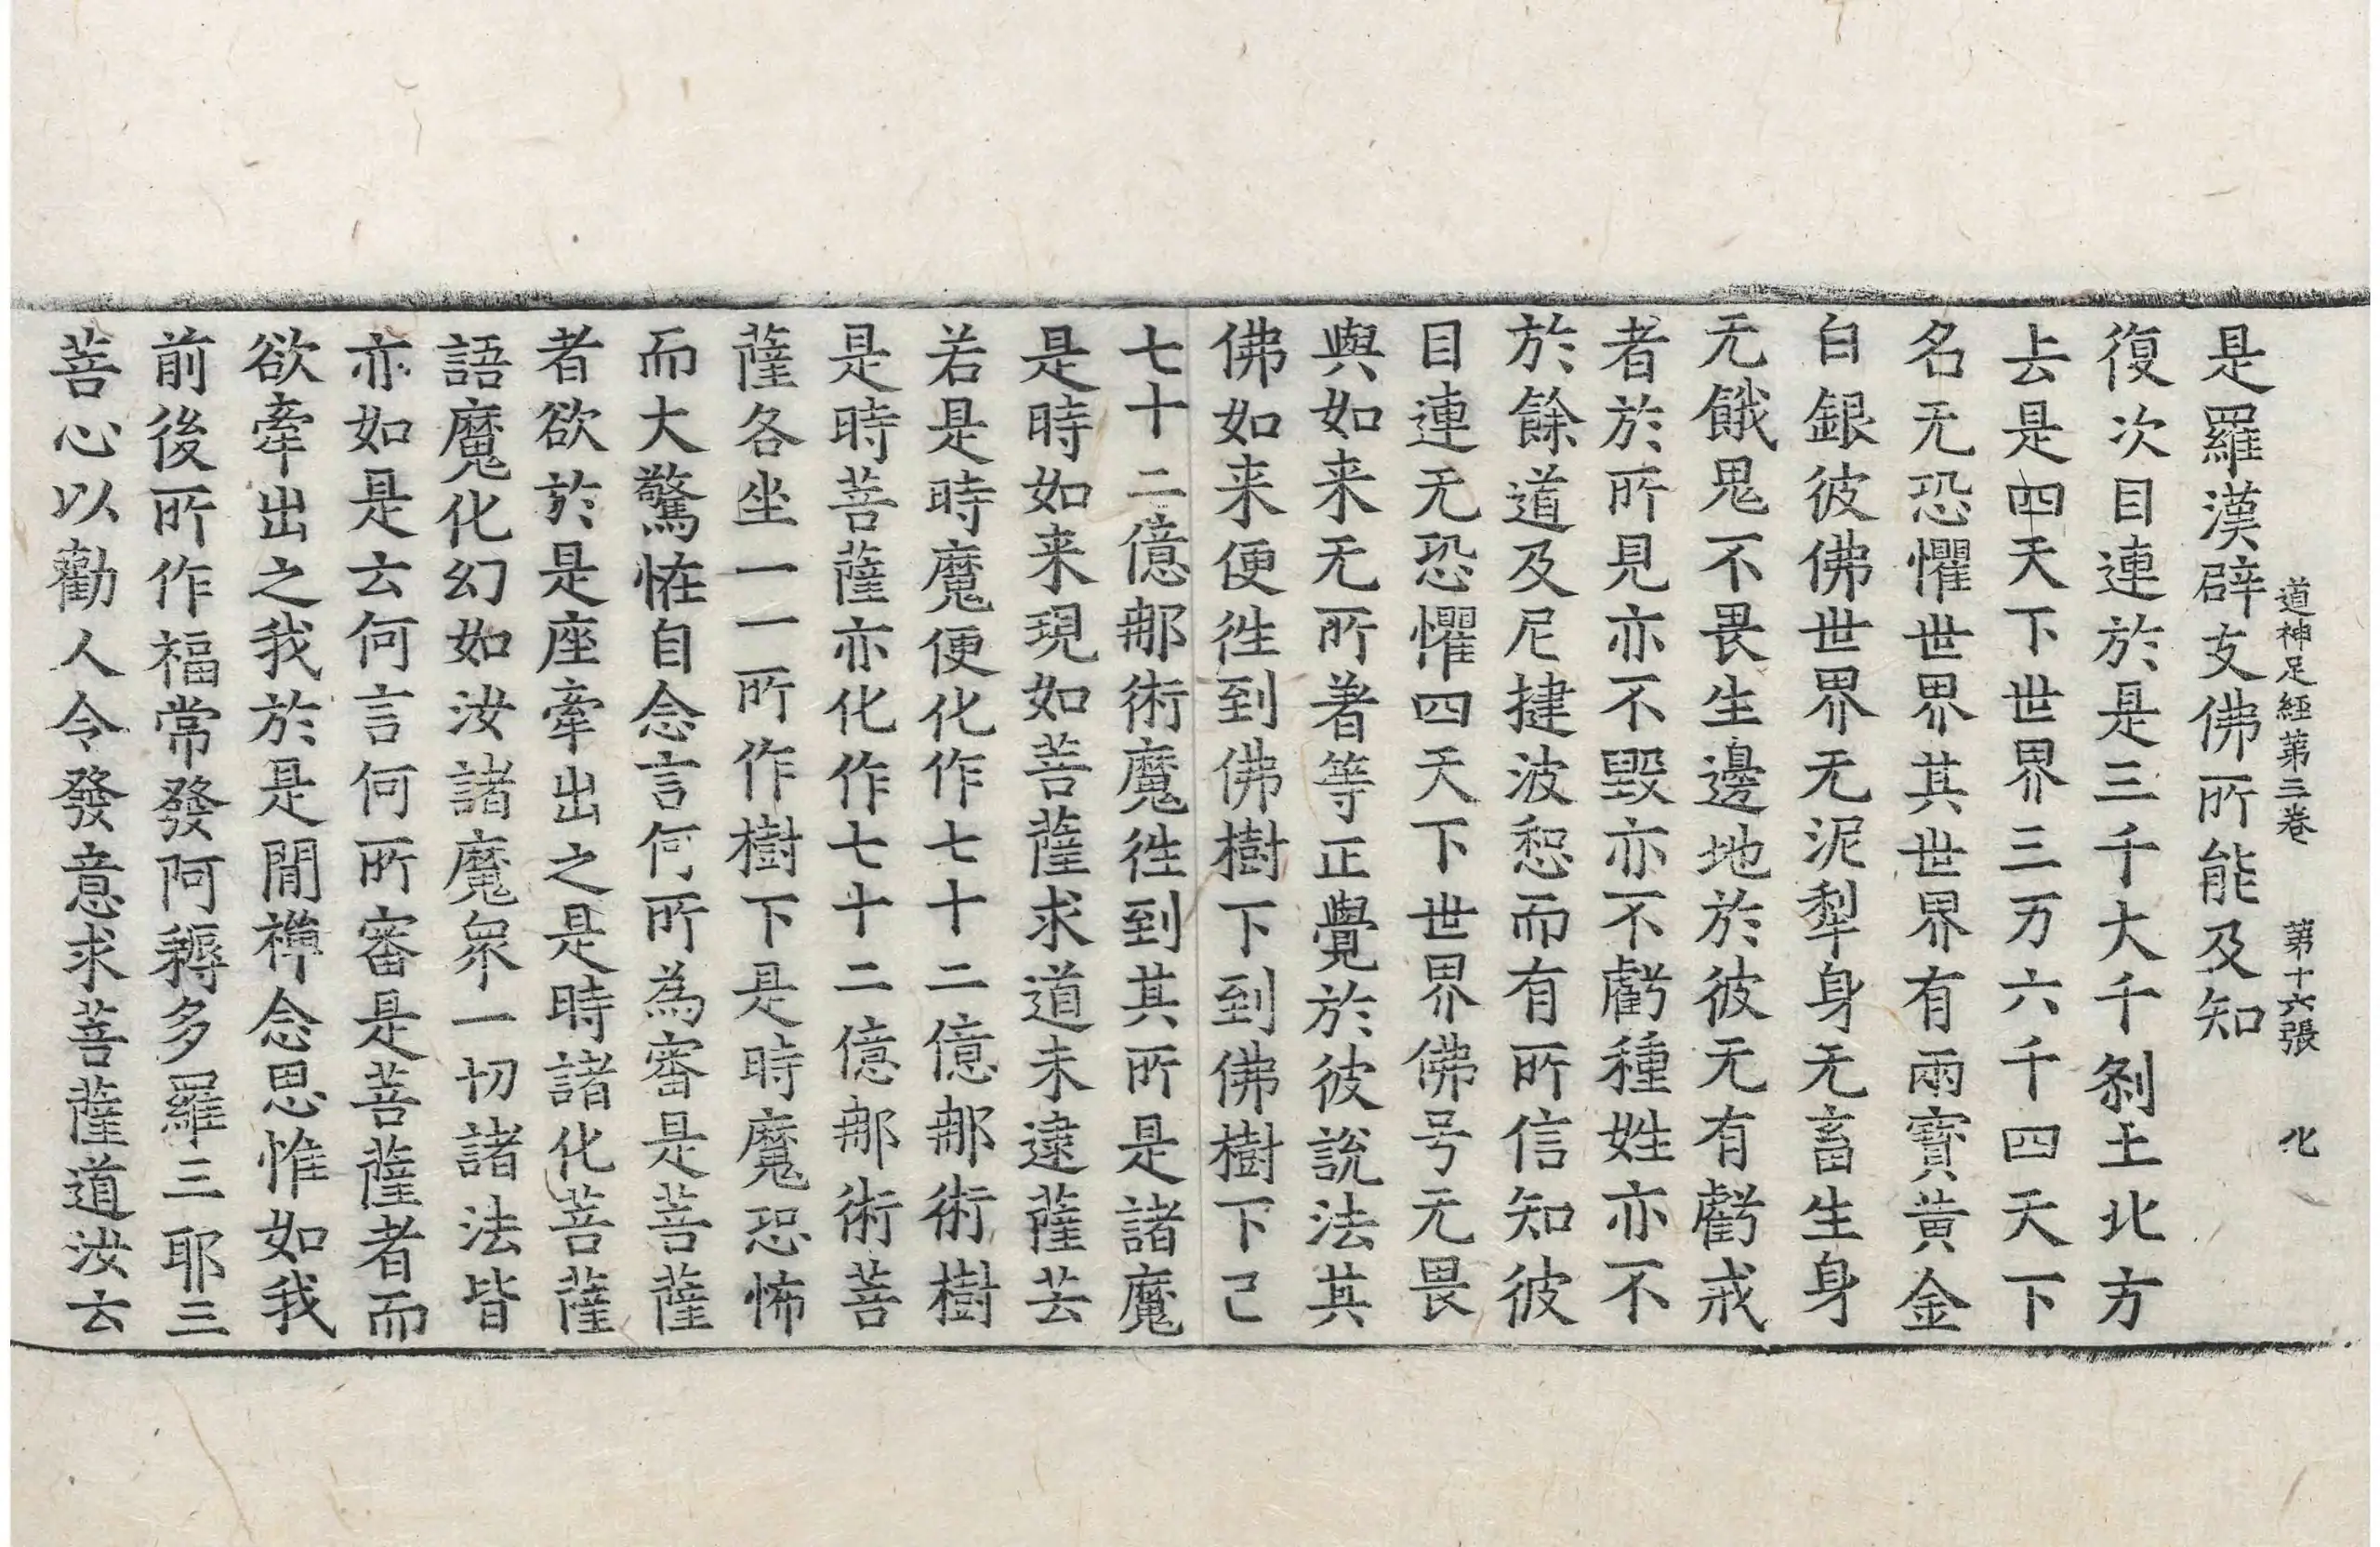 道神足經第三卷　第十六張　化
是羅漢辟支佛所能及知
復次目連於是三千大千刹土北方
去是四天下世界三万六千四天下
名无恐懼世界其世界有兩寶黃金
白銀彼佛世界无泥犁身无畜生身
无餓鬼不畏生邊地於彼无有虧戒
者於所見亦不毀亦不虧種姓亦不
於餘道及尼揵波惒而有所信知彼
目連无恐懼四天下世界佛号无畏
與如来无所著等正覺於彼說法其
佛如来便徃到佛樹下到佛樹下已
七十二億那術魔徃到其所是諸魔
是時如来現如菩薩求道未逮薩芸
若是時魔便化作七十二億那術樹
是時菩薩亦化作七十二億那術菩
薩各坐一一所作樹下是時魔恐怖
而大驚恠自念言何所為審是菩薩
者欲於是座牽出之是時諸化菩薩
語魔化幻如汝諸魔眾一切諸法皆
亦如是云何言何所審是菩薩者而
欲牽出之我於是閒禪念思惟如我
前後所作福常發阿耨多羅三耶三
菩心以勸人令發意求菩薩道汝云